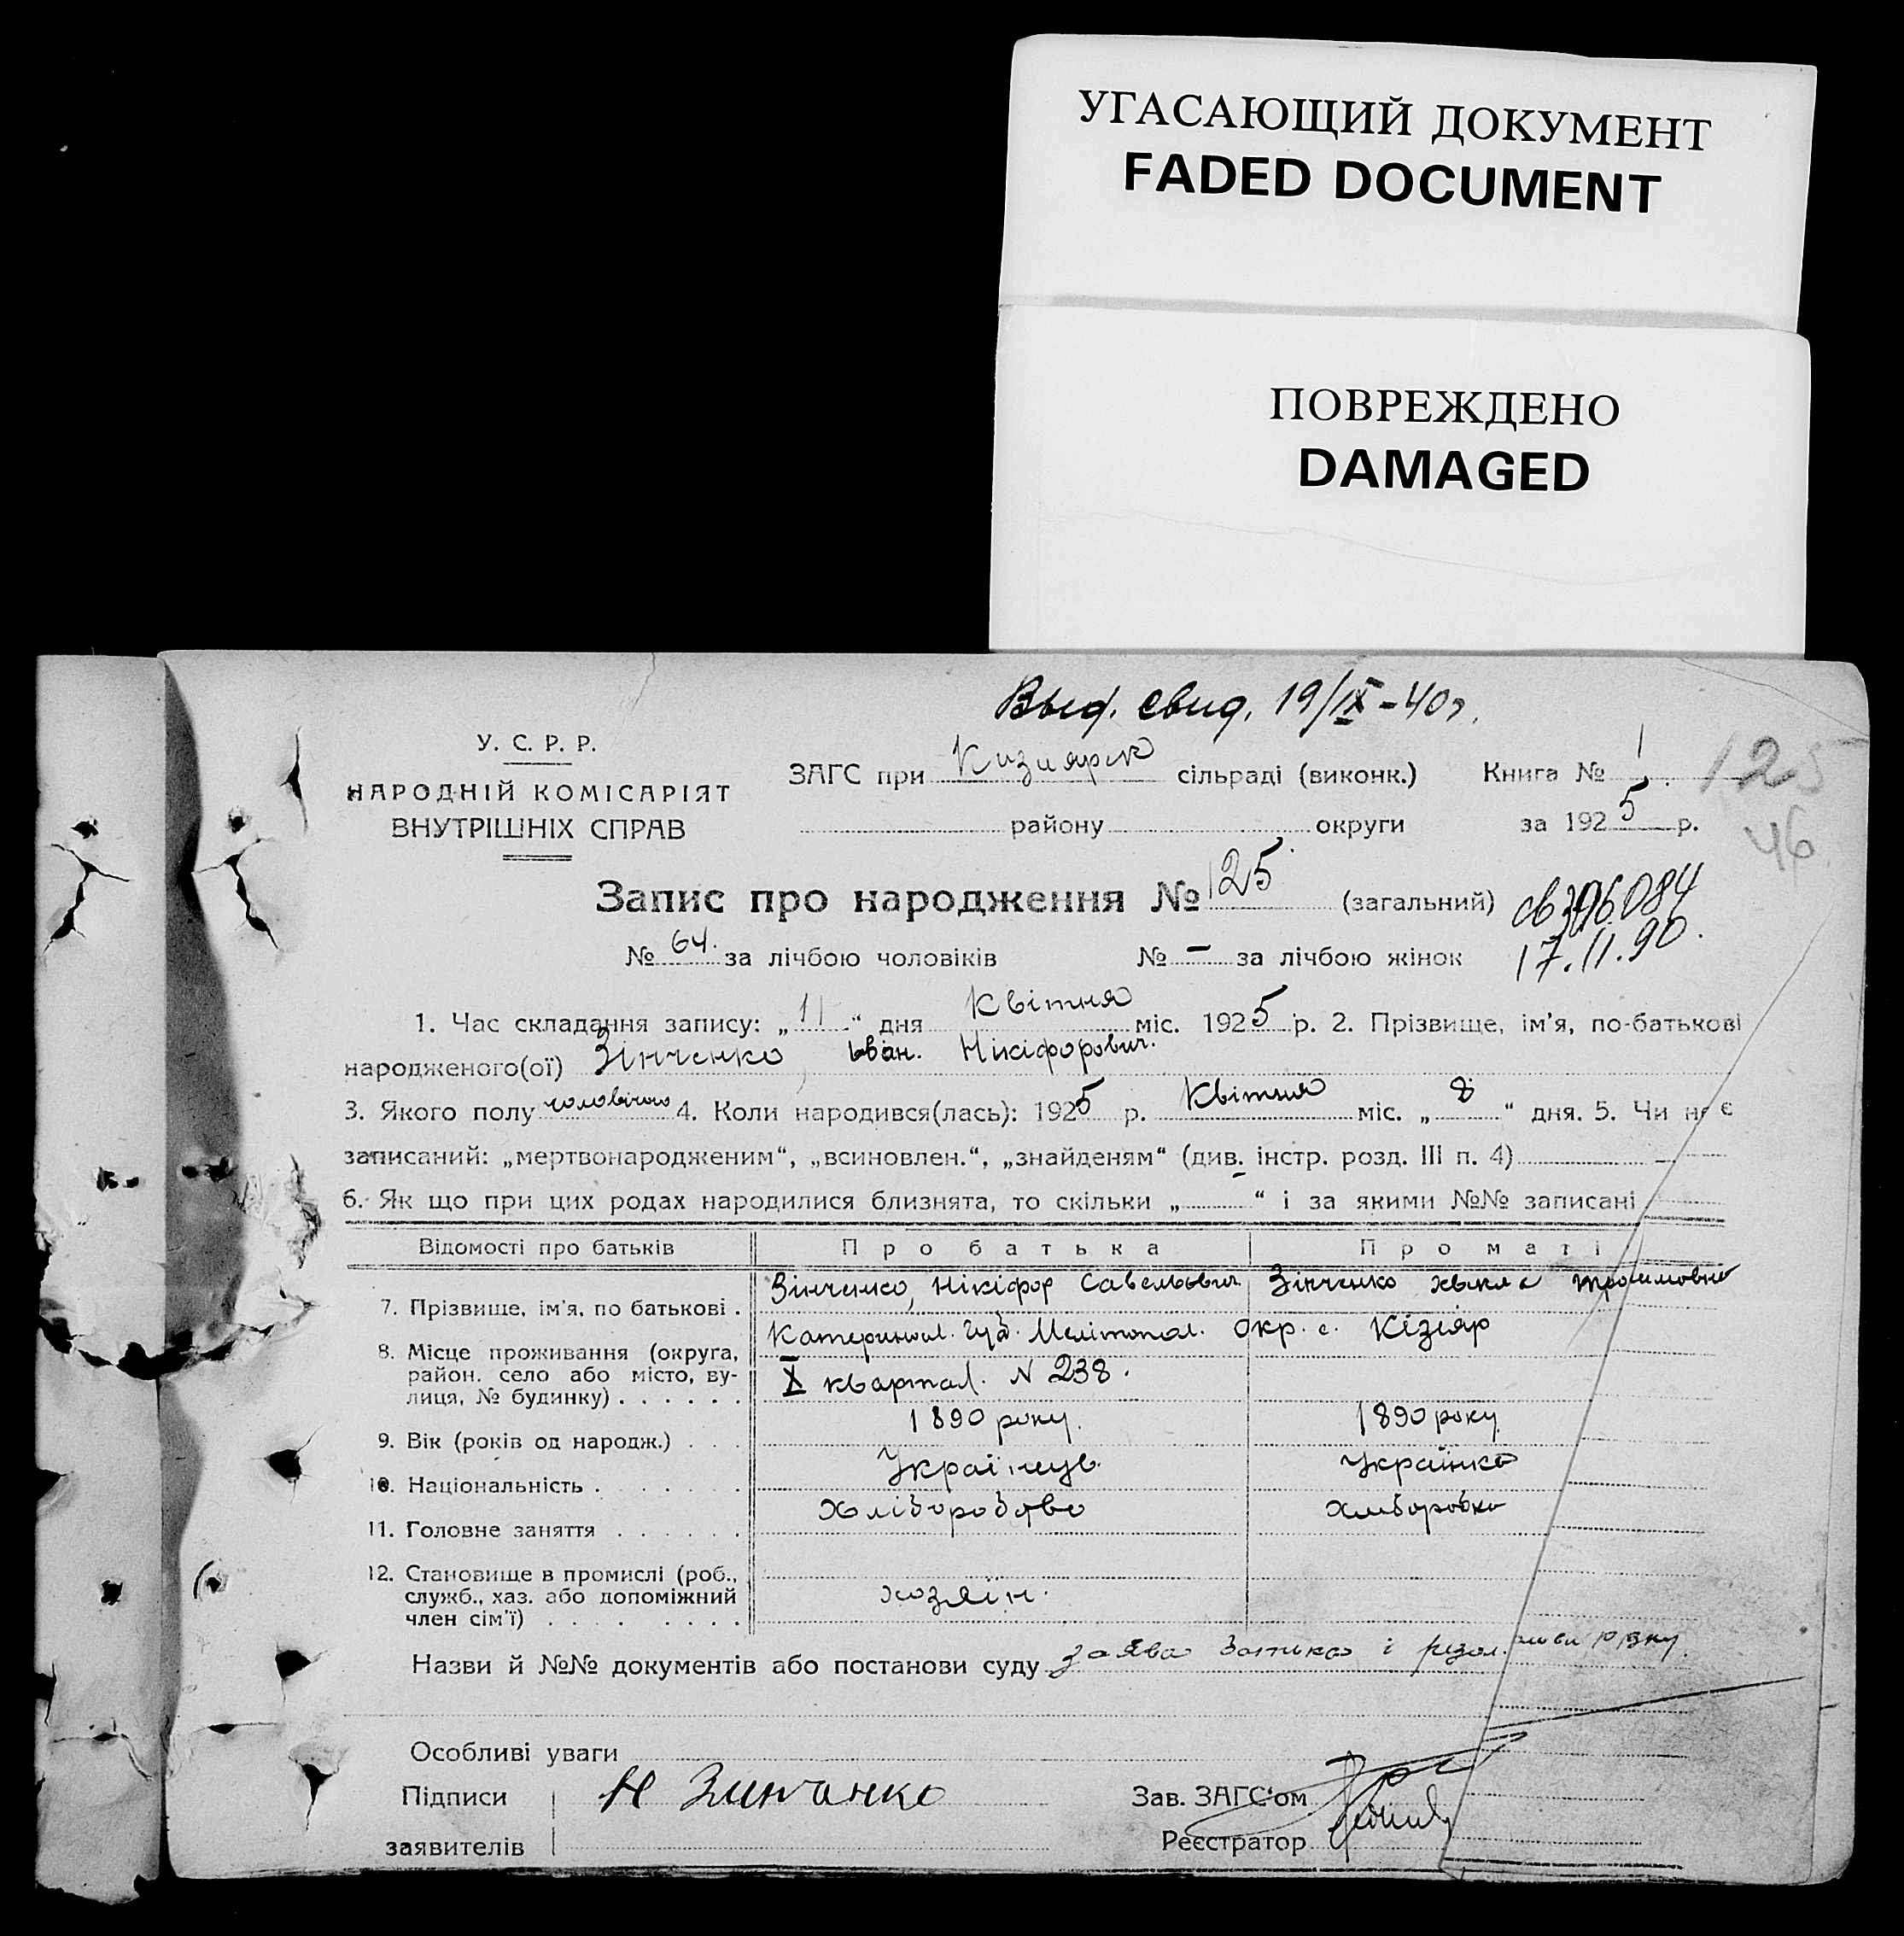 УГАСАЮЩИЙ ДОКУМЕНТ
FADED DOCUMENT
ПОВРЕЖДЕНО
DAMAGED
Выд. свид. 19/IX-40г.
У. С. Р. Р.
НАРОДНІЙ КОМІСАРІЯТ
ВНУТРІШНІХ СПРАВ
ЗАГС при Кизиярск сільраді (виконк.) Книга № 1
125
району округи за 1925 р.
46
Запис про народження № 125 (загальний)
№ 64. за лічбою чоловіків № - за лічбою жінок
17.11.90.
1. Час складання запису: „11“ дня Квітня міс. 1925 р. 2. Прізвище, ім'я, по-батькові
народженого(ої) Зінченко Іван. Нікіфорович.
3. Якого полу чоловічого 4. Коли народився(лась): 1925 р. Квітня міс. „8“ дня. 5. Чи не є
записаний: „мертвонародженим“, „всиновлен.“, „знайденям“ (див. інстр. розд. III п. 4)
6. Як що при цих родах народилися близнята, то скільки „-“ і за якими №№ записані
Відомості про батьків Про батька Про маті
7. Прізвище, ім'я, по батькові . Зінченко, Нікіфор Савельович Зінченко Трохимовна
8. Місце проживання (округа, Катериносл. Губ. Мелітопол. Окр. с. Кізіяр
район. село або місто, ву-
лиця, № будинку) . . . . . . X квартал. N 238.
9. Вік (років од народж.) . . . 1890 року. 1890 року
10. Національність . . . . . . . Українець Українка
11. Головне заняття . . . . . . Хліборобство Хліборобка
12. Становище в промислі (роб.,
служб., хаз. або допоміжний хозяїн.
член сім'ї) . . . . . . . .
Назви й №№ документів або постанови суду заява батька і
Особливі уваги
Підписи Н Зинчанко Зав. ЗАГС'ом
заявителів Реєстратор